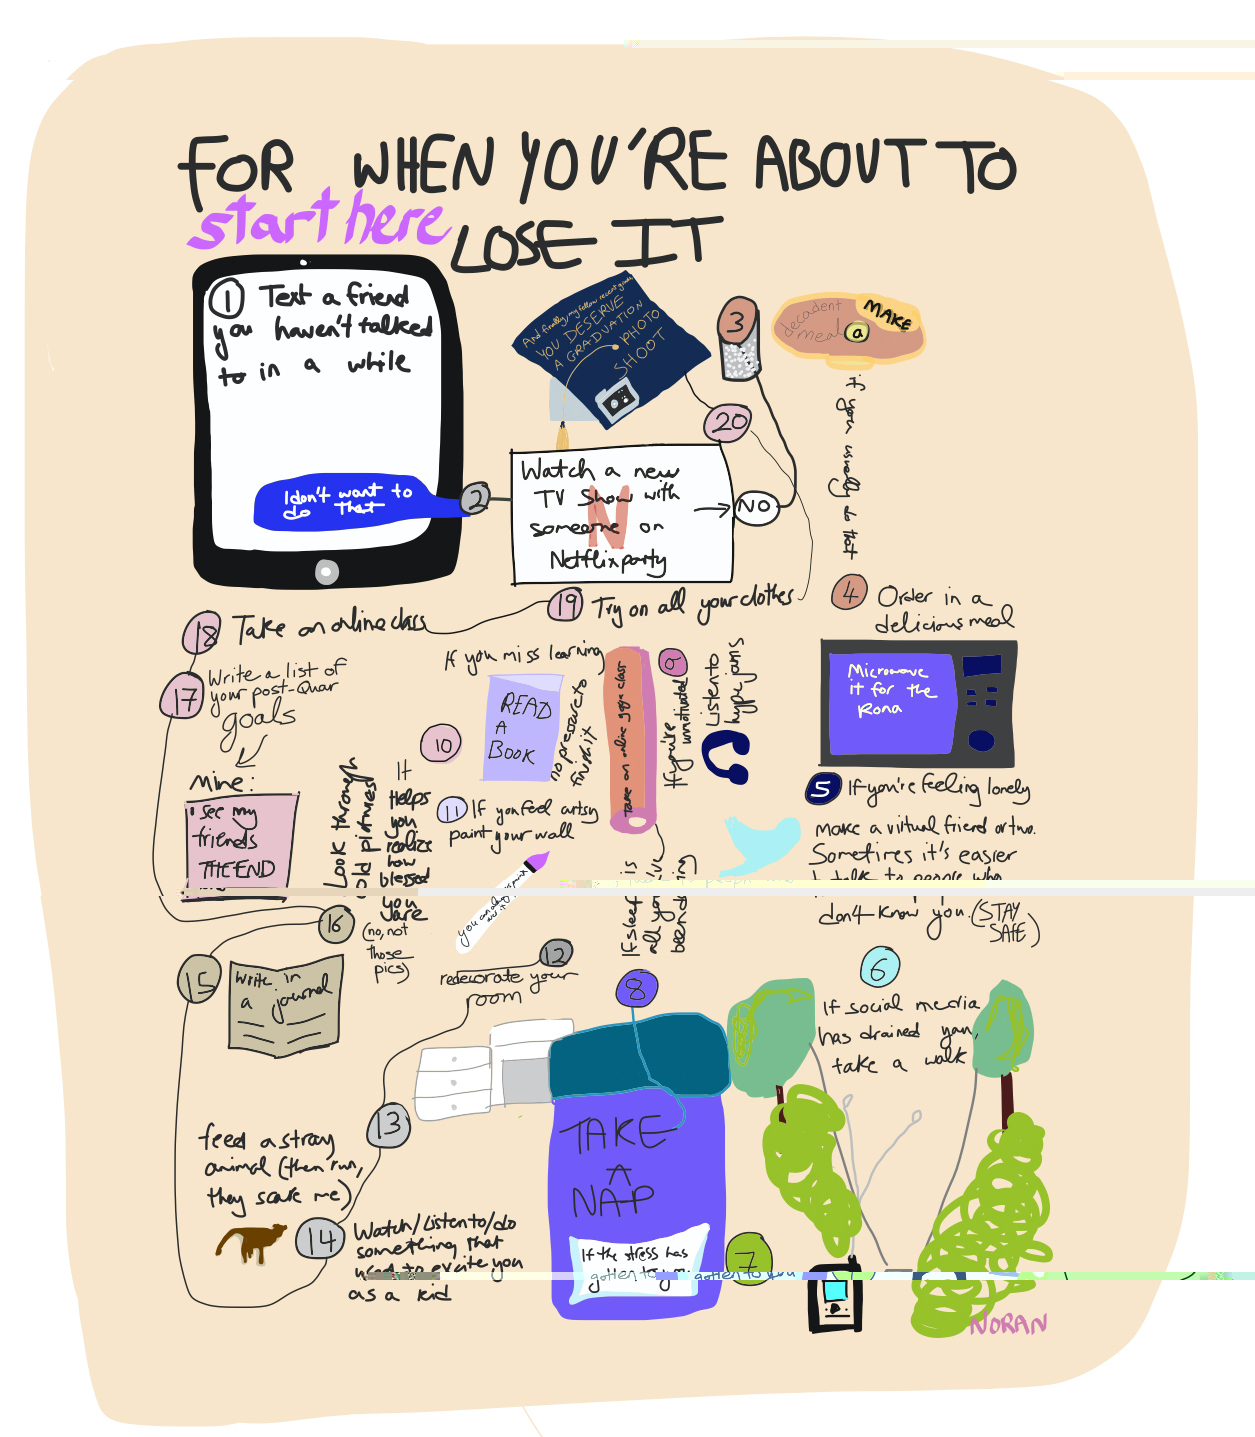 FOR WHEN YOU'RE ABOUT TO
LOSE IT
start here
1 Text a friend
you haven't talked
to in a while
I don't want to
do that
2
Watch a new
TV Show with
someone on
Netflixparty
N
NO
3
MAKE
a
decadent
meal
if you usually do that
4
Order in a
delicious meal
Microwave
it for the
Rona
5 If you're feeling lonely
make a virtual friend or two.
Sometimes it's easier
to talk to people who
don't know you. (STAY
SAFE)
6
If social media
has drained you,
take a walk
7
If the stress has
gotten to you
gotten to you
8
TAKE
A
NAP
If sleep is
all you've
been doing
take an online yoga class
9
If you're
unmotivated
Listen to
hype jams
10
If you miss learning
READ
A
BOOK
no pressure to
finish it
11 If you feel artsy
paint your wall
12
redecorate your
room
13
feed a stray
animal (then run,
they scare me)
14
Watch/Listen to/do
something that
used to excite you
as a kid
15
Write in
a journal
16
Look through
old pictures
It
Helps
you
realize
how
blessed
you
are
(no, not
those
pics)
17
Write a list of
your post-Quar
goals
Mine:
• see my
friends
THE END
18
Take an online class
19
Try on all your clothes
20
And finally, my fellow recent grads
YOU DESERVE
A GRADUATION
PHOTO
SHOOT
NORAN